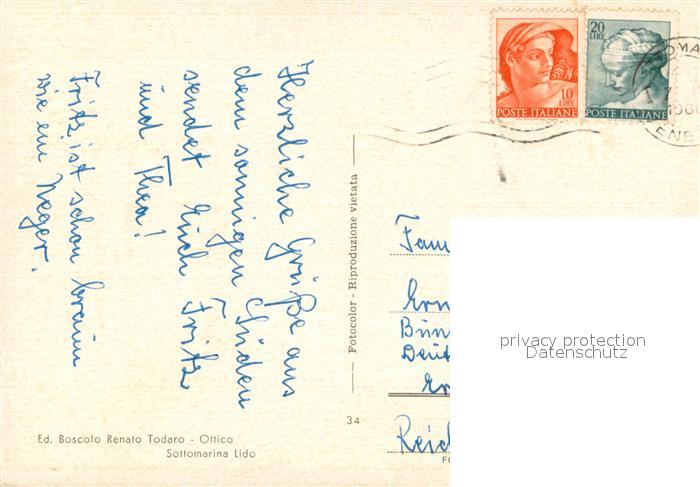 Herzliche Grüße aus
dem sonnigen Süden
sendet Euch Fritz
und Thea!
Fritz ist schon braun
wie ein Neger.
Ed. Boscolo Renato Todaro - Ottico
Sottomarina Lido
Fotocolor - Riproduzione vietata
34
10
LIRE
POSTE ITALIANE
20
LIRE
POSTE ITALIANE
OMA
196
ENE
Fam
Ern
Bun
Deut
Er
Reich
privacy protection
Datenschutz